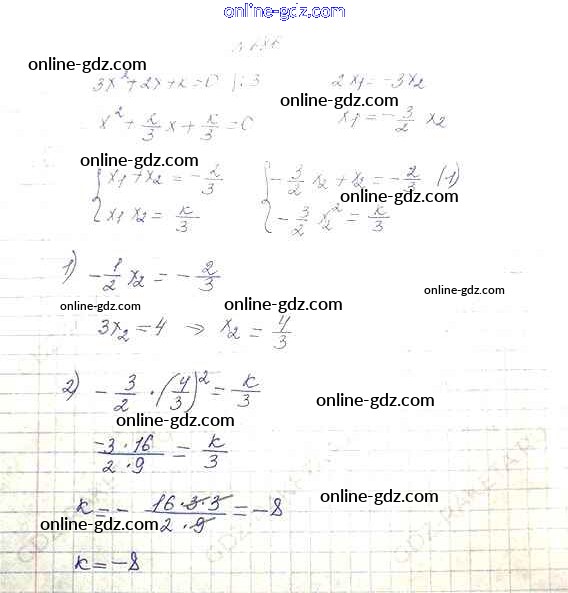 online-gdz.com
online-gdz.com
3x² + 2x + k = 0 |:3    2x₁ = -3x₂
x² + k/3 x + k/3 = 0    x₁ = -3/2 x₂
online-gdz.com
{ x₁ + x₂ = -2/3    { -3/2 x₂ + x₂ = -2/3 (1)
online-gdz.com
x₁ x₂ = k/3    -3/2 x₂² = k/3
1) -1/2 x₂ = -2/3
online-gdz.com
online-gdz.com online-gdz.com
3x₂ = 4 ⇒ x₂ = 4/3
2) -3/2 · (4/3)² = k/3
online-gdz.com
online-gdz.com
-3·16 / 2·9 = k/3
k = - 16·3·3 / 2·9 = -8
online-gdz.com
online-gdz.com
k = -8